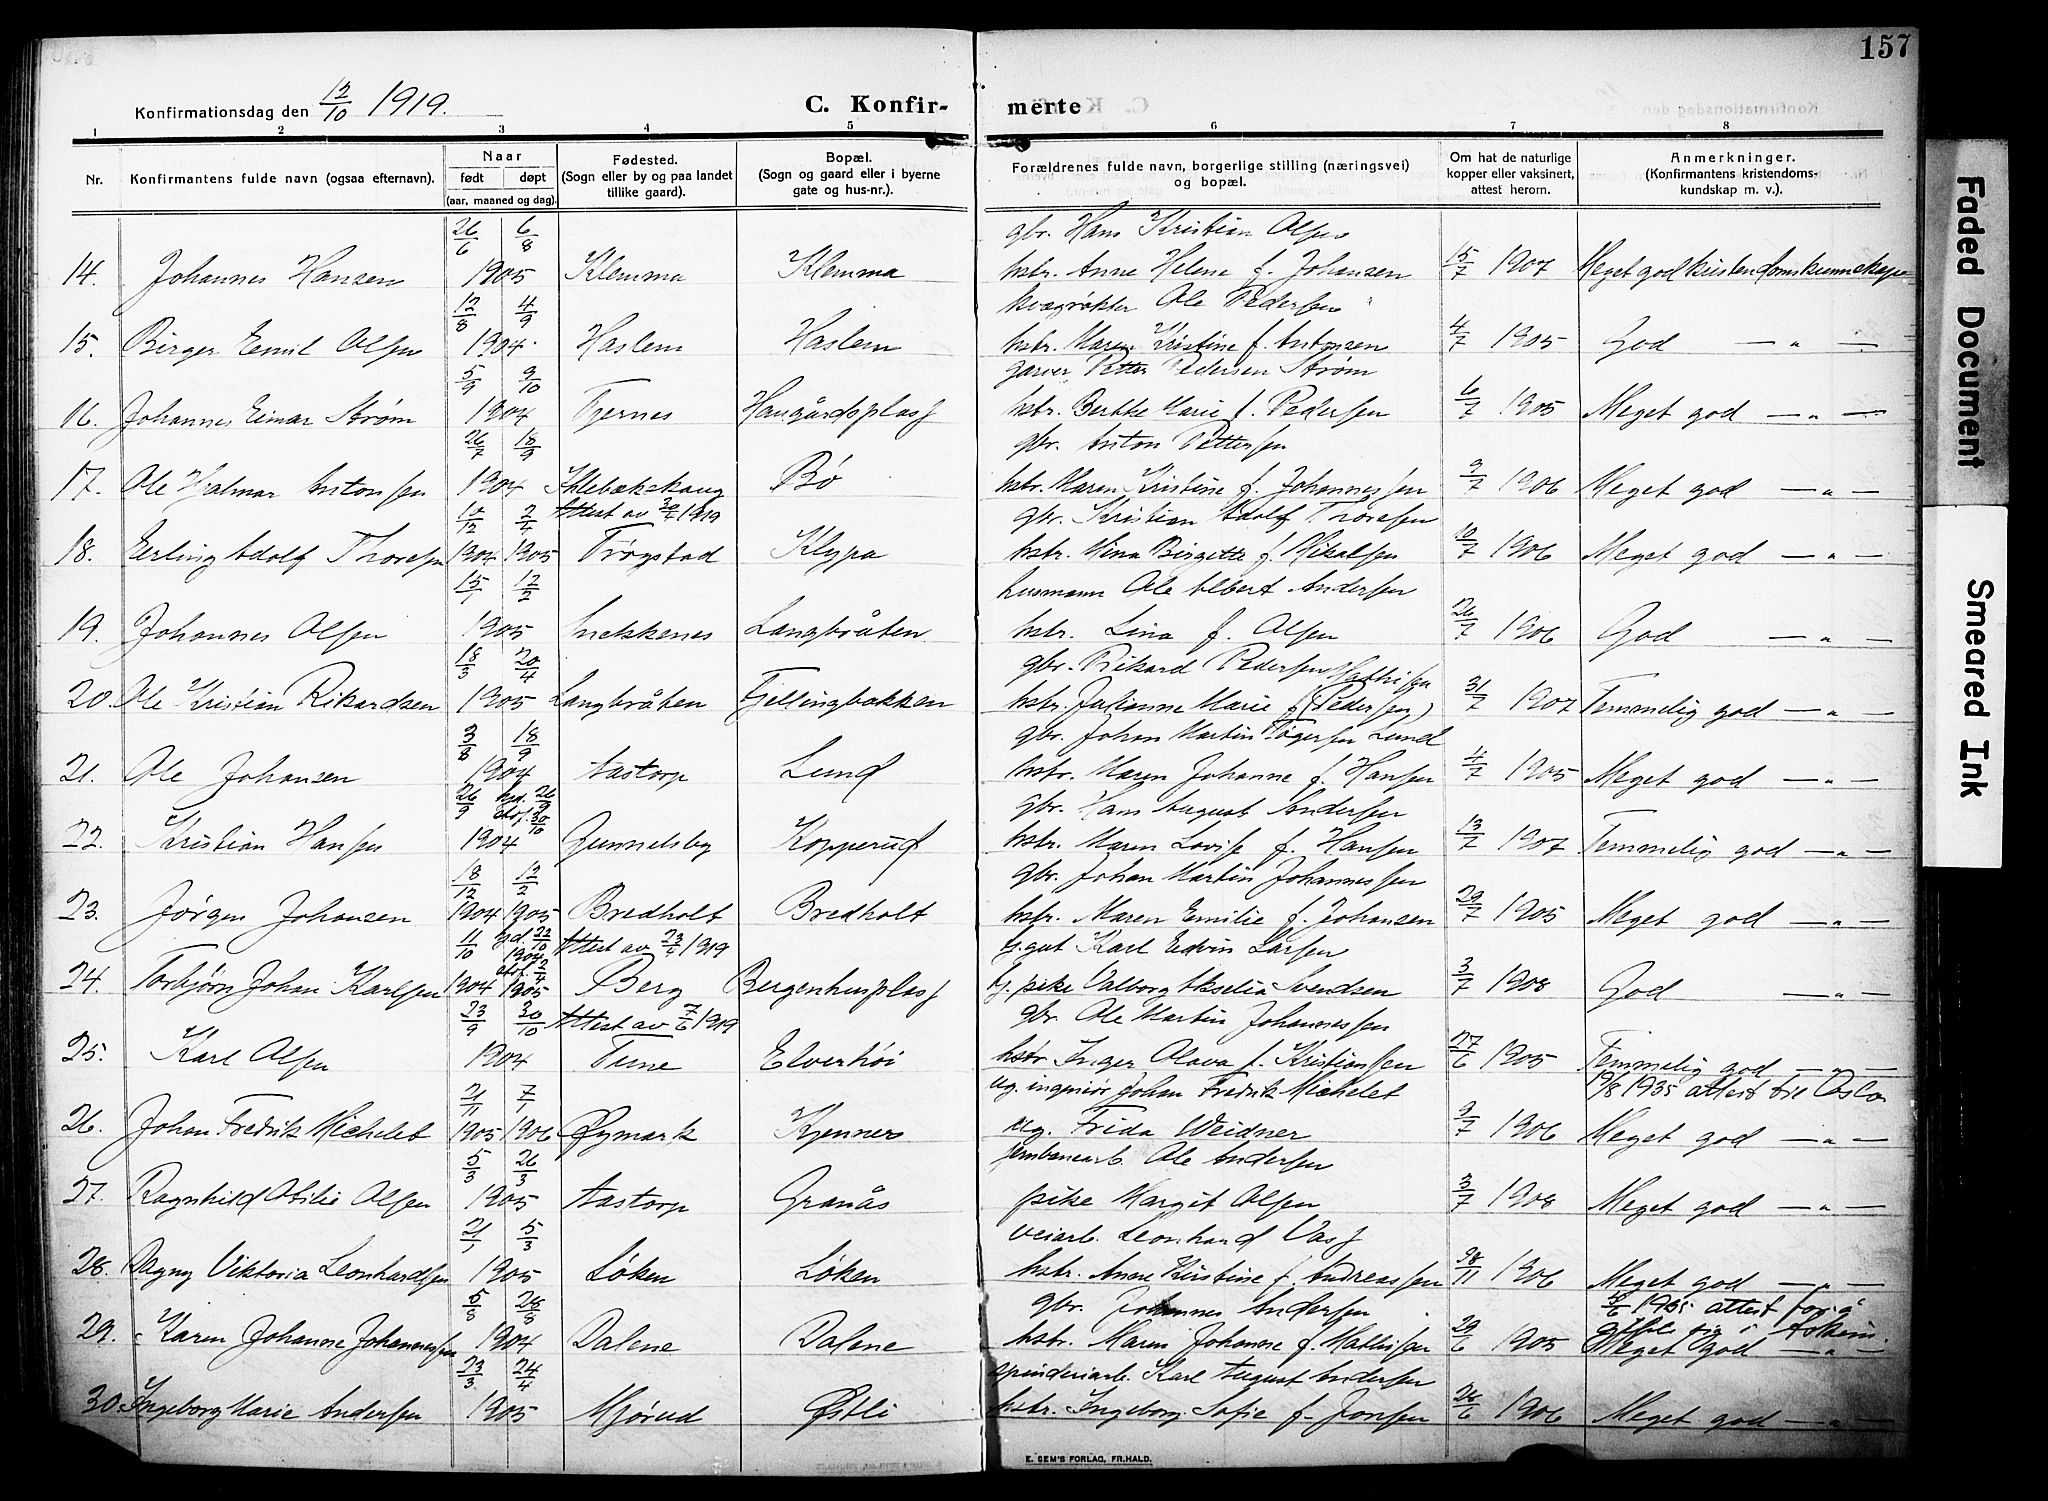 157
Konfirmationsdag den 12/10 1919.
C. Konfirmerte
1 2 3 4 5 6 7 8
Nr.
Konfirmantens fulde navn (ogsaa efternavn).
Naar
født døpt
(aar, maaned og dag).
Fødested.
(Sogn eller by og paa landet
tillike gaard).
Bopæl.
(Sogn og gaard eller i byerne
gate og hus-nr.).
Forældrenes fulde navn, borgerlige stilling (næringsvei)
og bopæl.
Om hat de naturlige
kopper eller vaksinert,
attest herom.
Anmerkninger.
(Konfirmantens kristendoms-
kundskap m. v.).
26/6 6/8 gbr. Hans Kristian Olsen
14. Johannes Hansen 1905 Klemma Klemma hstr. Anne Helene f. Johansen 15/7 1907 Meget god kristendomskunnskap
12/8 4/9 kvægrøkter Ole Pedersen
15. Birger Emil Olsen 1904 Haslem Haslem hstr. Maren Kristine f. Antonsen 4/7 1905 God — " —
5/9 9/10 garver Petter Pedersen Strøm
16. Johannes Einar Strøm 1904 Tjernes Haugårdsplass hstr. Berthe Marie f. Pedersen 6/7 1905 Meget god — " —
26/7 18/9 gbr. Anton Pettersen
17. Ole Hjalmar Antonsen 1904 Bø hstr. Maren Kristine f. Johannessen 9/7 1906 Meget god — " —
10/12 2/4 Attest av 30/4 1919 gbr. Kristian Adolf Thoresen
18. Erling Adolf Thoresen 1904 1905 Trøgstad Klypa hstr. Mina Birgitte f. Mikalsen 10/7 1906 Meget god — " —
15/1 12/2 husmann Ole Albert Andersen
19. Johannes Olsen 1905 Snekkenes Langbråten hstr. Lina f. Olsen 26/7 1906 God — " —
18/3 20/4 gbr. Rikard Pedersen Mathisen
20. Ole Kristian Rikardsen 1905 Langbråten Fjellingbakken hstr. Julianne Marie f. (Pedersen) 31/7 1907 Temmelig god — " —
3/8 18/9 gbr. Johan Martin Tøgersen Lund
21. Ole Johansen 1904 Aastorp Lund hstr. Maren Johanne f. Hansen 4/7 1905 Meget god — " —
26/9 hjd. 26/9 stf. 30/10 gbr. Hans August Andersen
22. Kristian Hansen 1904 Gunnelsby Kopperud hstr. Maren Lovise f. Hansen 13/7 1907 Temmelig god — " —
18/12 12/2 gbr. Johan Martin Johannessen
23. Jørgen Johansen 1904 1905 Bredholt Bredholt hstr. Maren Emilie f. Johansen 29/7 1905 Meget god — " —
11/10 hjd. 22/10 1904 Attest av 23/4 1919 g. gut Karl Edvin Larsen
24. Torbjørn Johan Karlsen 1904 stf. 2/4 1905 Berg Bergenhusplass g. pike Valborg Akselia Svendsen 3/7 1908 God — " —
23/9 30/10 Attest av 7/6 1919 gbr. Ole Martin Johannessen
25. Karl Olsen 1904 Tune Elverhøi hstr. Inger Olava f. Kristianssen 27/6 1905 Temmelig god — " —
21/11 7/1 ug. ingeniør Johan Fredrik Michelet 19/8 1935 attest til Oslo
26. Johan Fredrik Michelet 1905 1906 Øymark Kjennes ug. Frida Weidner 9/7 1906 Meget god — " —
5/3 26/3 jernbanearb. Ole Andersen
27. Ragnhild Otilie Olsen 1905 Aastorp Granås pike Margit Olsen 3/7 1908 Meget god — " —
21/1 5/3 veiarb. Leonhard Vass
28. Dagny Viktoria Leonhardsen 1905 Løken Løken hstr. Anne Kirstine f. Andreassen 28/11 1906 Meget god — " —
5/8 28/8 gbr. Johannes Andersen 1935 attest for å
29. Karen Johanne Johannessen 1904 Dalene Dalene hstr. Maren Johanne f. Mathisen 29/6 1905 Meget god — " —
23/3 24/4 spinderiarb. Karl August Andersen
30. Ingeborg Marie Andersen 1905 Mjørud Østli hstr. Ingeborg Sofie f. Jonsen 26/6 1906 Meget god — " —
E. SEM'S FORLAG, FR.HALD.
Faded Document
Smeared Ink